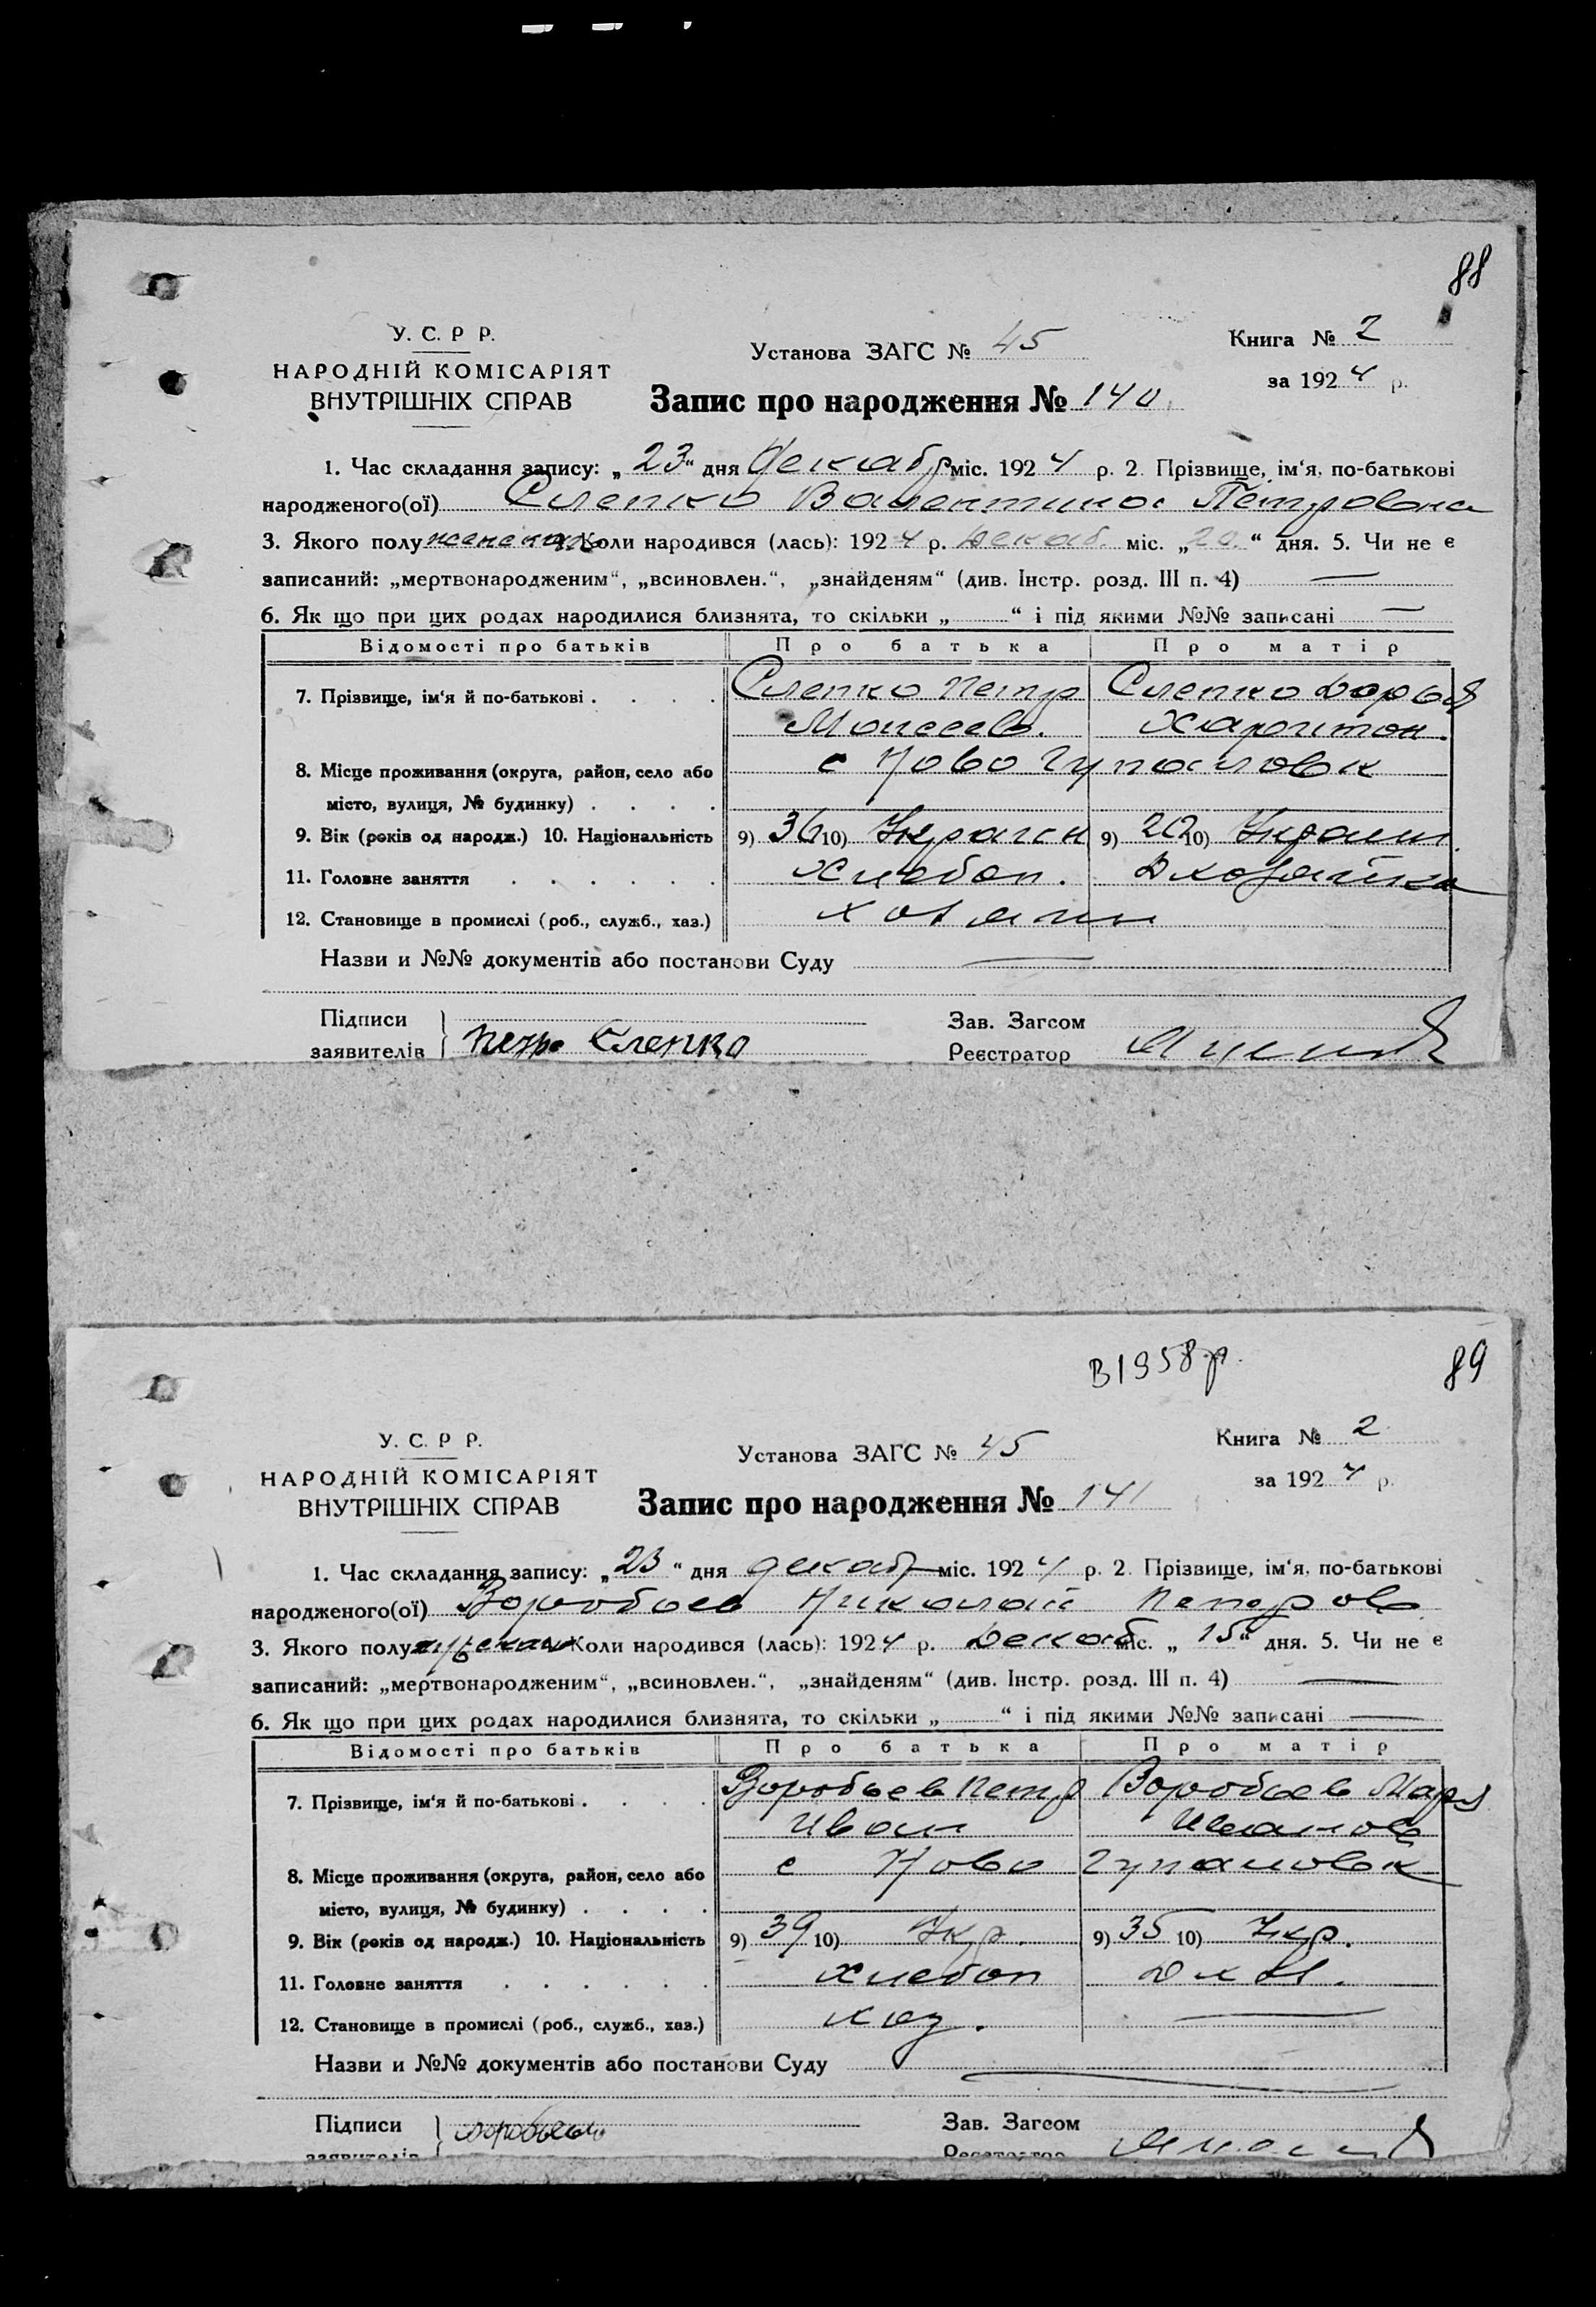 88
У. С. Р Р.
НАРОДНІЙ КОМІСАРІЯТ
ВНУТРІШНІХ СПРАВ
Установа ЗАГС № 45
Книга № 2
за 1924 р.
Запис про народження № 140
1. Час складання запису: „23“ дня Декабр міс. 1924 р. 2. Прізвище, ім‘я, по-батькові
народженого(ої) Слепко Валентина Петровна
3. Якого полу женскаго Коли народився (лась): 1924 р. Декаб. міс. „20.“ дня. 5. Чи не є
записаний: „мертвонародженим“, „всиновлен.“, „знайденям“ (див. Інстр. розд. III п. 4) —
6. Як що при цих родах народилися близнята, то скільки „ “ і під якими №№ записані —
Відомості про батьків Про батька Про матір
7. Прізвище, ім‘я й по-батькові . . . . Слепко Петр Слепко Дарья
Моисеев. Харитон.
8. Місце проживання (округа, район, село або с Ново
місто, вулиця, № будинку) . . . .
9. Вік (років од народж.) 10. Національність 9) 36 10) Украин 9) 20 10) Украин.
11. Головне заняття . . . . . . Хлебоп. Д хозяйка
12. Становище в промислі (роб., служб., хаз.) хозяин
Назви и №№ документів або постанови Суду —
Підписи
заявителів } Петро Слепко
Зав. Загсом
Реєстратор
В 1958 р.
89
У. С. Р Р.
НАРОДНІЙ КОМІСАРІЯТ
ВНУТРІШНІХ СПРАВ
Установа ЗАГС № 45
Книга № 2
за 1924 р.
Запис про народження № 141
1. Час складання запису: „23“ дня декабр міс. 1924 р. 2. Прізвище, ім‘я, по-батькові
народженого(ої) Воробьев Николай Петров
3. Якого полу Коли народився (лась): 1924 р. Декаб. міс. „15“ дня. 5. Чи не є
записаний: „мертвонародженим“, „всиновлен.“, „знайденям“ (див. Інстр. розд. III п. 4) —
6. Як що при цих родах народилися близнята, то скільки „ “ і під якими №№ записані —
Відомості про батьків Про батька Про матір
7. Прізвище, ім‘я й по-батькові . . . . Воробьев Петр Воробьев Мар
Иван Иванов
8. Місце проживання (округа, район, село або с Ново
місто, вулиця, № будинку) . . . .
9. Вік (років од народж.) 10. Національність 9) 39 10) Укр. 9) 35 10) Укр.
11. Головне заняття . . . . . . Хлебоп Д хоз.
12. Становище в промислі (роб., служб., хаз.) хоз. —
Назви и №№ документів або постанови Суду —
Підписи
заявителів } Воробьев
Зав. Загсом
Реєстратор